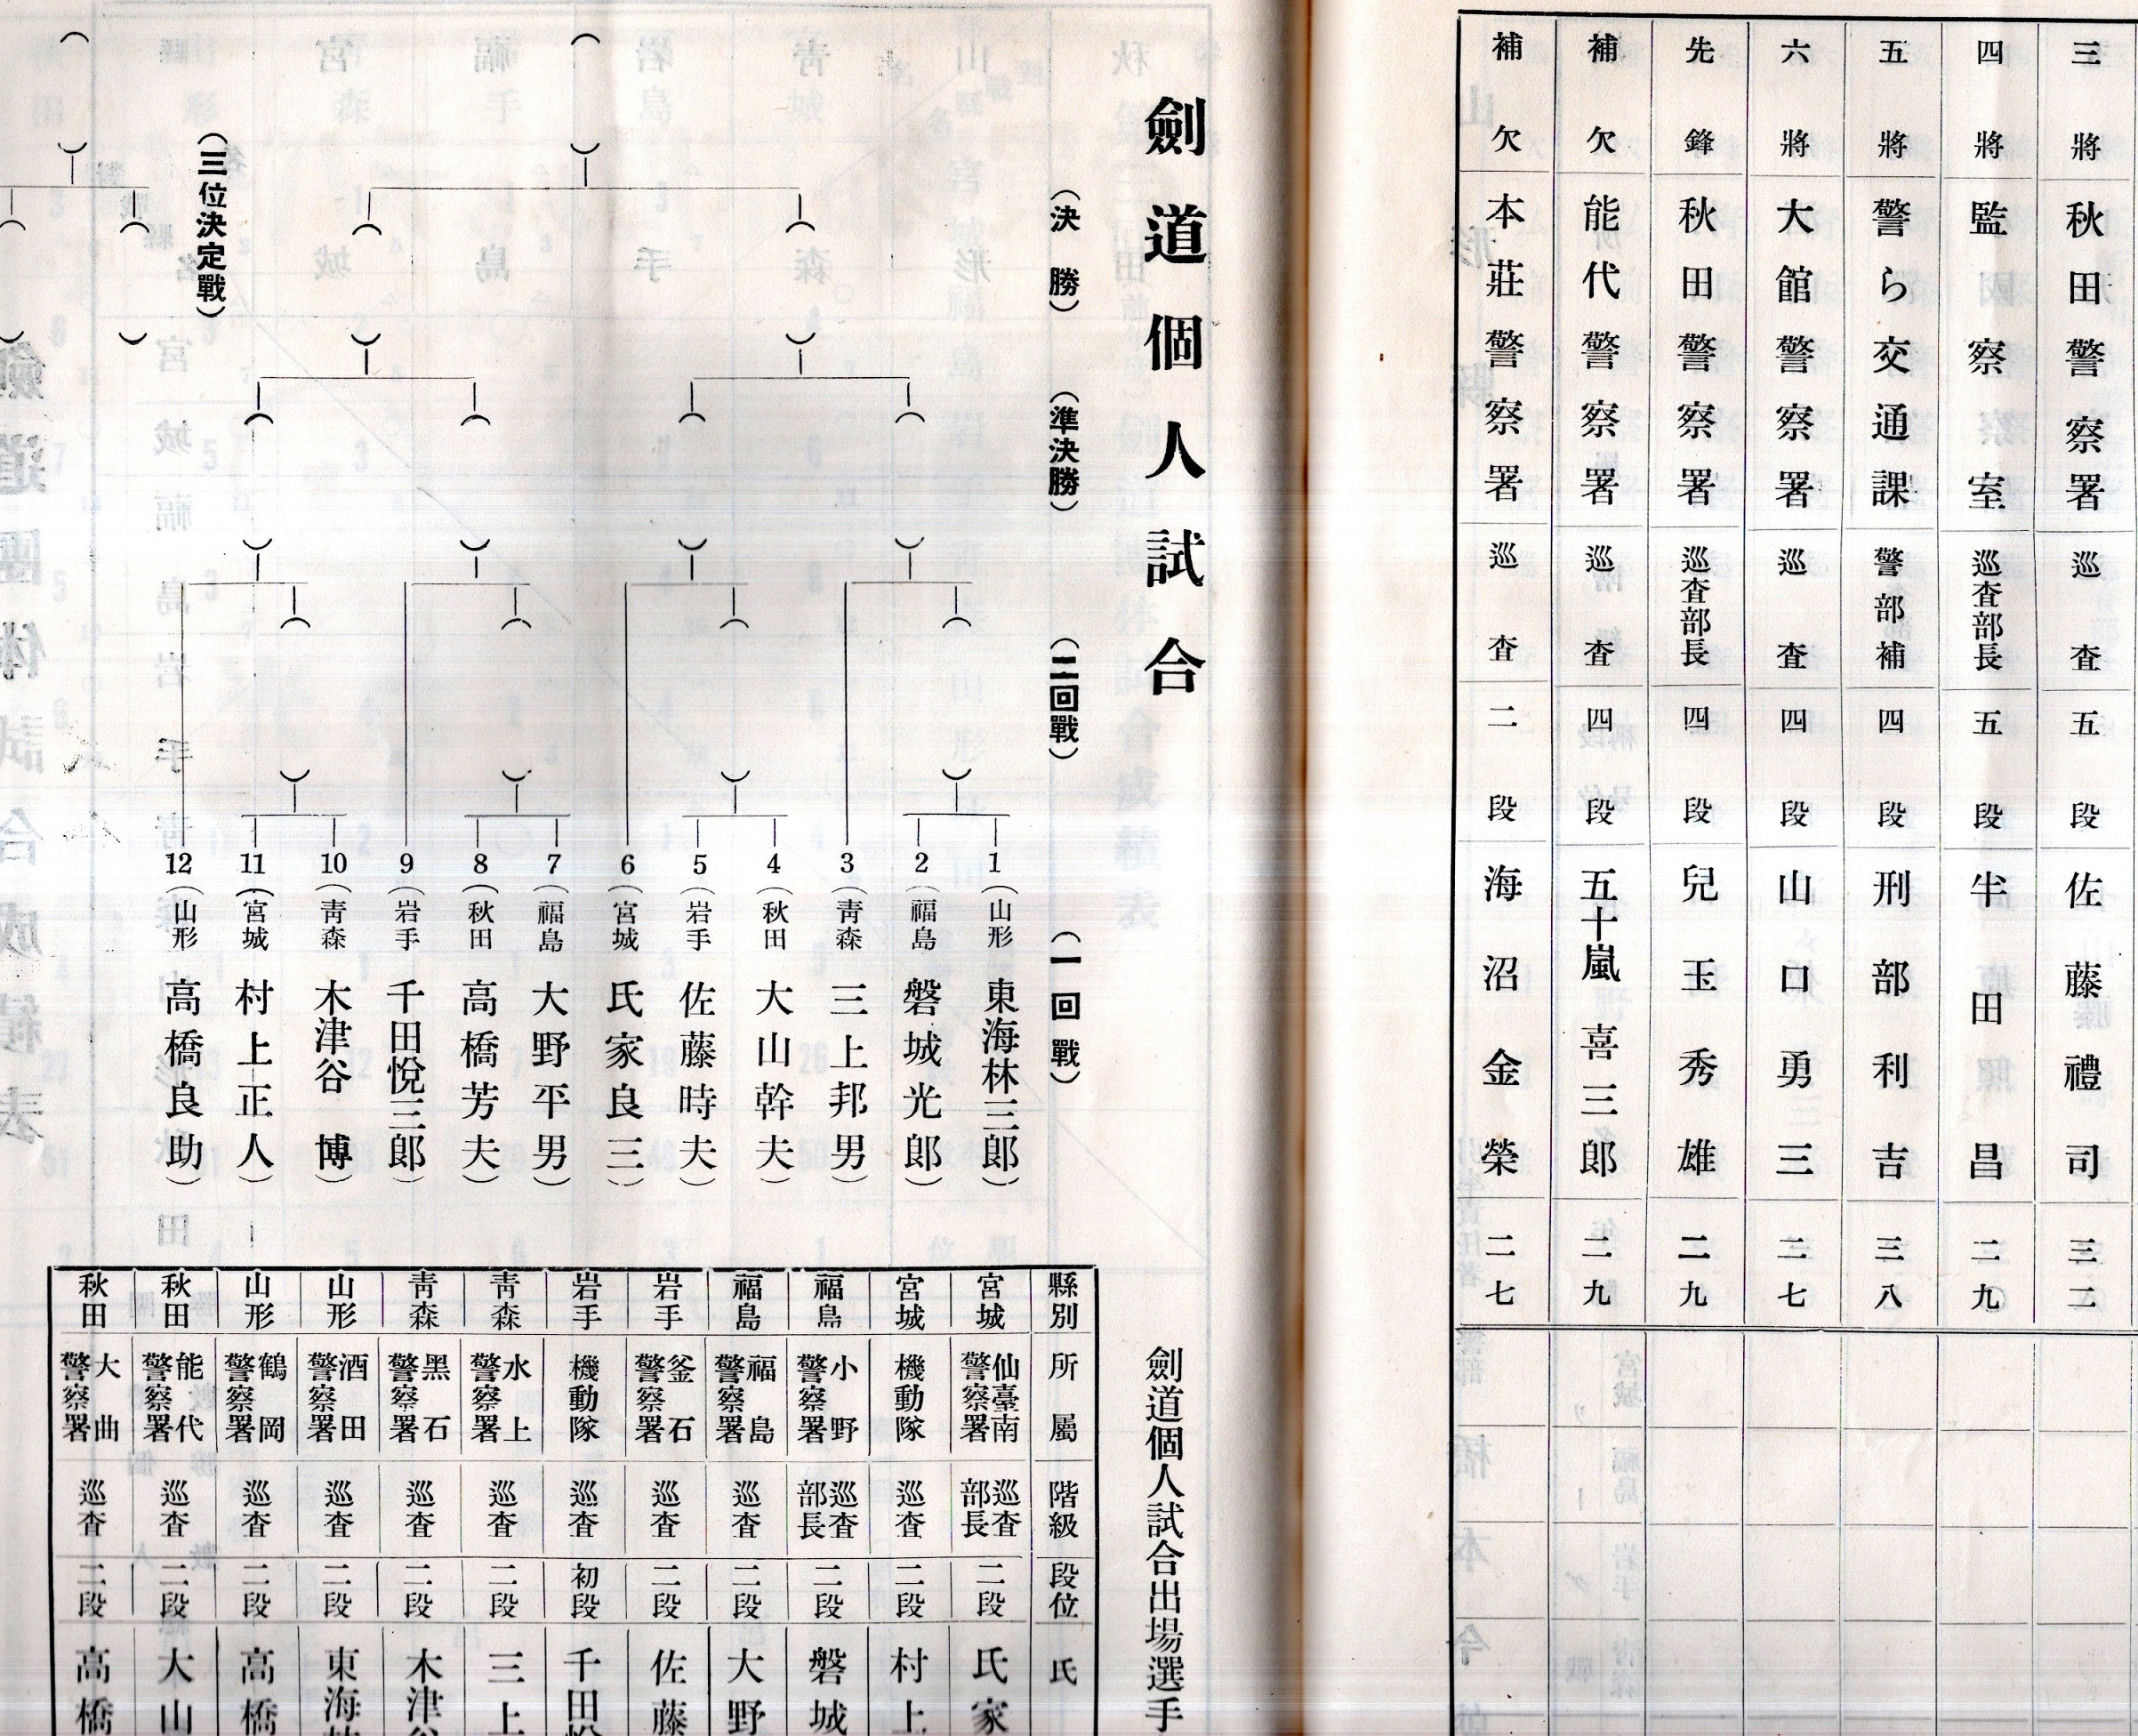 三將 秋田警察署 巡査 五段 佐藤禮司 三二
四將 監察室 巡査部長 五段 半田昌 二九
五將 警ら交通課 警部補 四段 刑部利吉 三八
六將 大館警察署 巡査 四段 山口勇三 二七
先鋒 秋田警察署 巡査部長 四段 兒玉秀雄 二九
補欠 能代警察署 巡査 四段 五十嵐喜三郎 二九
補欠 本莊警察署 巡査 二段 海沼金榮 二七
劍道個人試合
(決勝)
(準決勝)
(二回戰)
(一回戰)
1(山形 東海林三郎)
2(福島 磐城光郎)
3(靑森 三上邦男)
4(秋田 大山幹夫)
5(岩手 佐藤時夫)
6(宮城 氏家良三)
7(福島 大野平男)
8(秋田 高橋芳夫)
9(岩手 千田悅三郎)
10(靑森 木津谷博)
11(宮城 村上正人)
12(山形 高橋良助)
(三位決定戰)
劍道個人試合出場選手
縣別 所屬 階級 段位 氏
宮城 仙臺南警察署 巡査部長 二段 氏家
宮城 機動隊 巡査 二段 村上
福島 小野警察署 巡査部長 二段 磐城
福島 福島警察署 巡査 二段 大野
岩手 釜石警察署 巡査 二段 佐藤
岩手 機動隊 巡査 初段 千田悅
靑森 水上警察署 巡査 二段 三上
靑森 黑石警察署 巡査 二段 木津谷
山形 酒田警察署 巡査 二段 東海林
山形 鶴岡警察署 巡査 二段 高橋
秋田 能代警察署 巡査 二段 大山
秋田 大曲警察署 巡査 二段 高橋